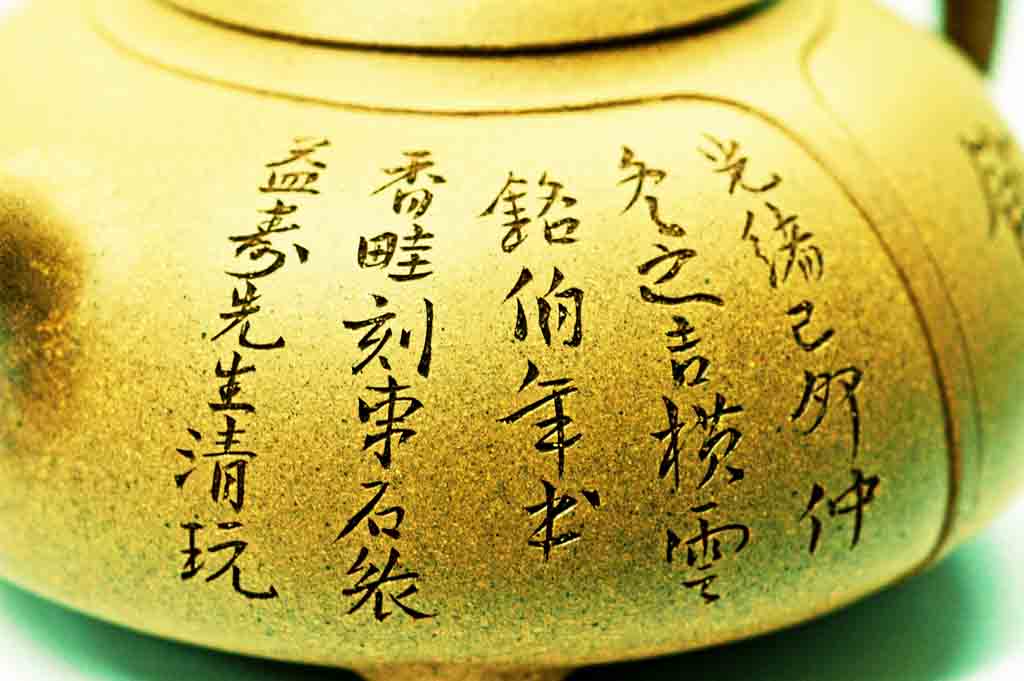 光緒己卯仲
冬之吉橫雲
銘伯年书
香畦刻東石製
益寿先生清玩